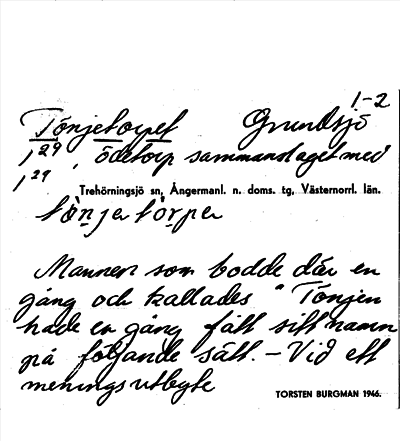 1-2
Tönjetorpet Grundsjö
1 29, ödetorp sammanslaget med
1 29
Trehörningsjö sn, Ångermanl. n. doms. tg, Västernorrl. län.
tönjetorpe
Mannen som bodde där en
gång och kallades "Tönjen
hade en gång fått sitt namn
på följande sätt. - Vid ett
meningsutbyte
TORSTEN BURGMAN 1946.